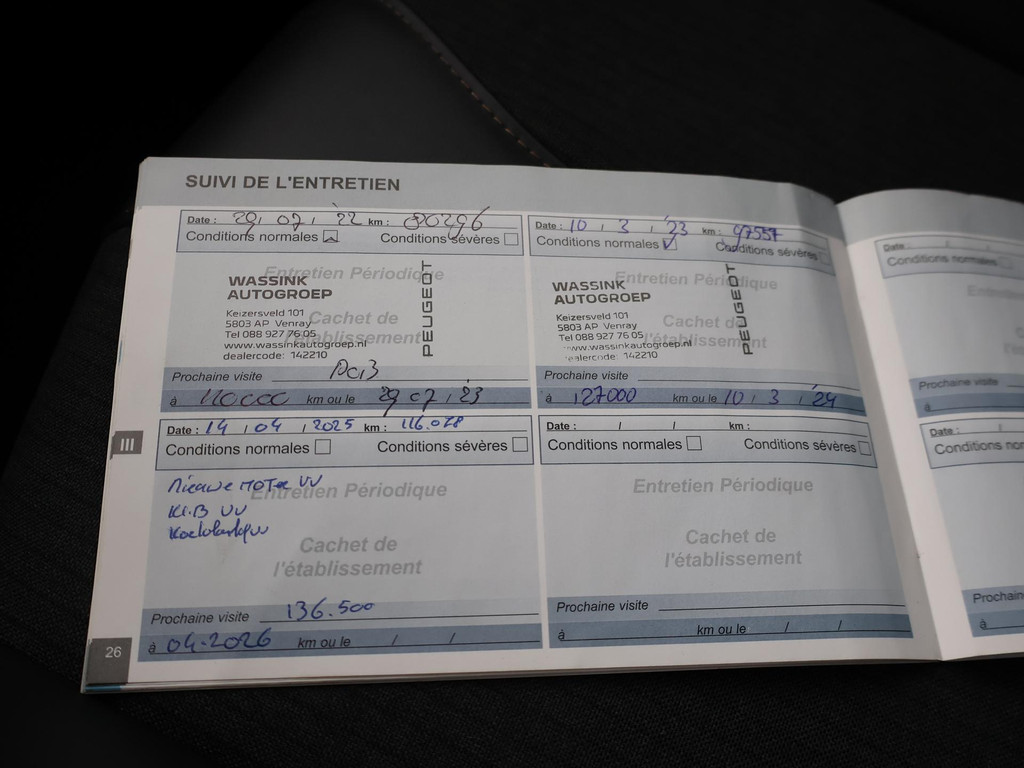 SUIVI DE L'ENTRETIEN
Date : 29 / 07 / 22 km : 80296
Conditions normales Conditions sévères
Entretien Périodique
WASSINK
AUTOGROEP
PEUGEOT
Keizersveld 101
5803 AP Venray
Tel 088 927 76 05
www.wassinkautogroep.nl
dealercode: 142210
Cachet de
l'établissement
Prochaine visite
à 110000 km ou le 29 07 / 23
Date : 10 / 3 / 23 km : 97557
Conditions normales Conditions sévères
Entretien Périodique
WASSINK
AUTOGROEP
PEUGEOT
Keizersveld 101
5803 AP Venray
Tel 088 927 76 05
www.wassinkautogroep.nl
dealercode: 142210
Cachet de
l'établissement
Prochaine visite
à 127000 km ou le 10 / 3 / 24
III
Date : 14 / 04 / 2025 km : 116.028
Conditions normales Conditions sévères
Nieuwe motor VV
Entretien Périodique
VV
VV
Cachet de
l'établissement
Prochaine visite 136.500
à 04-2026 km ou le / /
Date : / / km :
Conditions normales Conditions sévères
Entretien Périodique
Cachet de
l'établissement
Prochaine visite
à km ou le / /
26
Date : / /
Conditions normales
Prochaine visite
à
Date : /
Conditions nor
Prochain
à